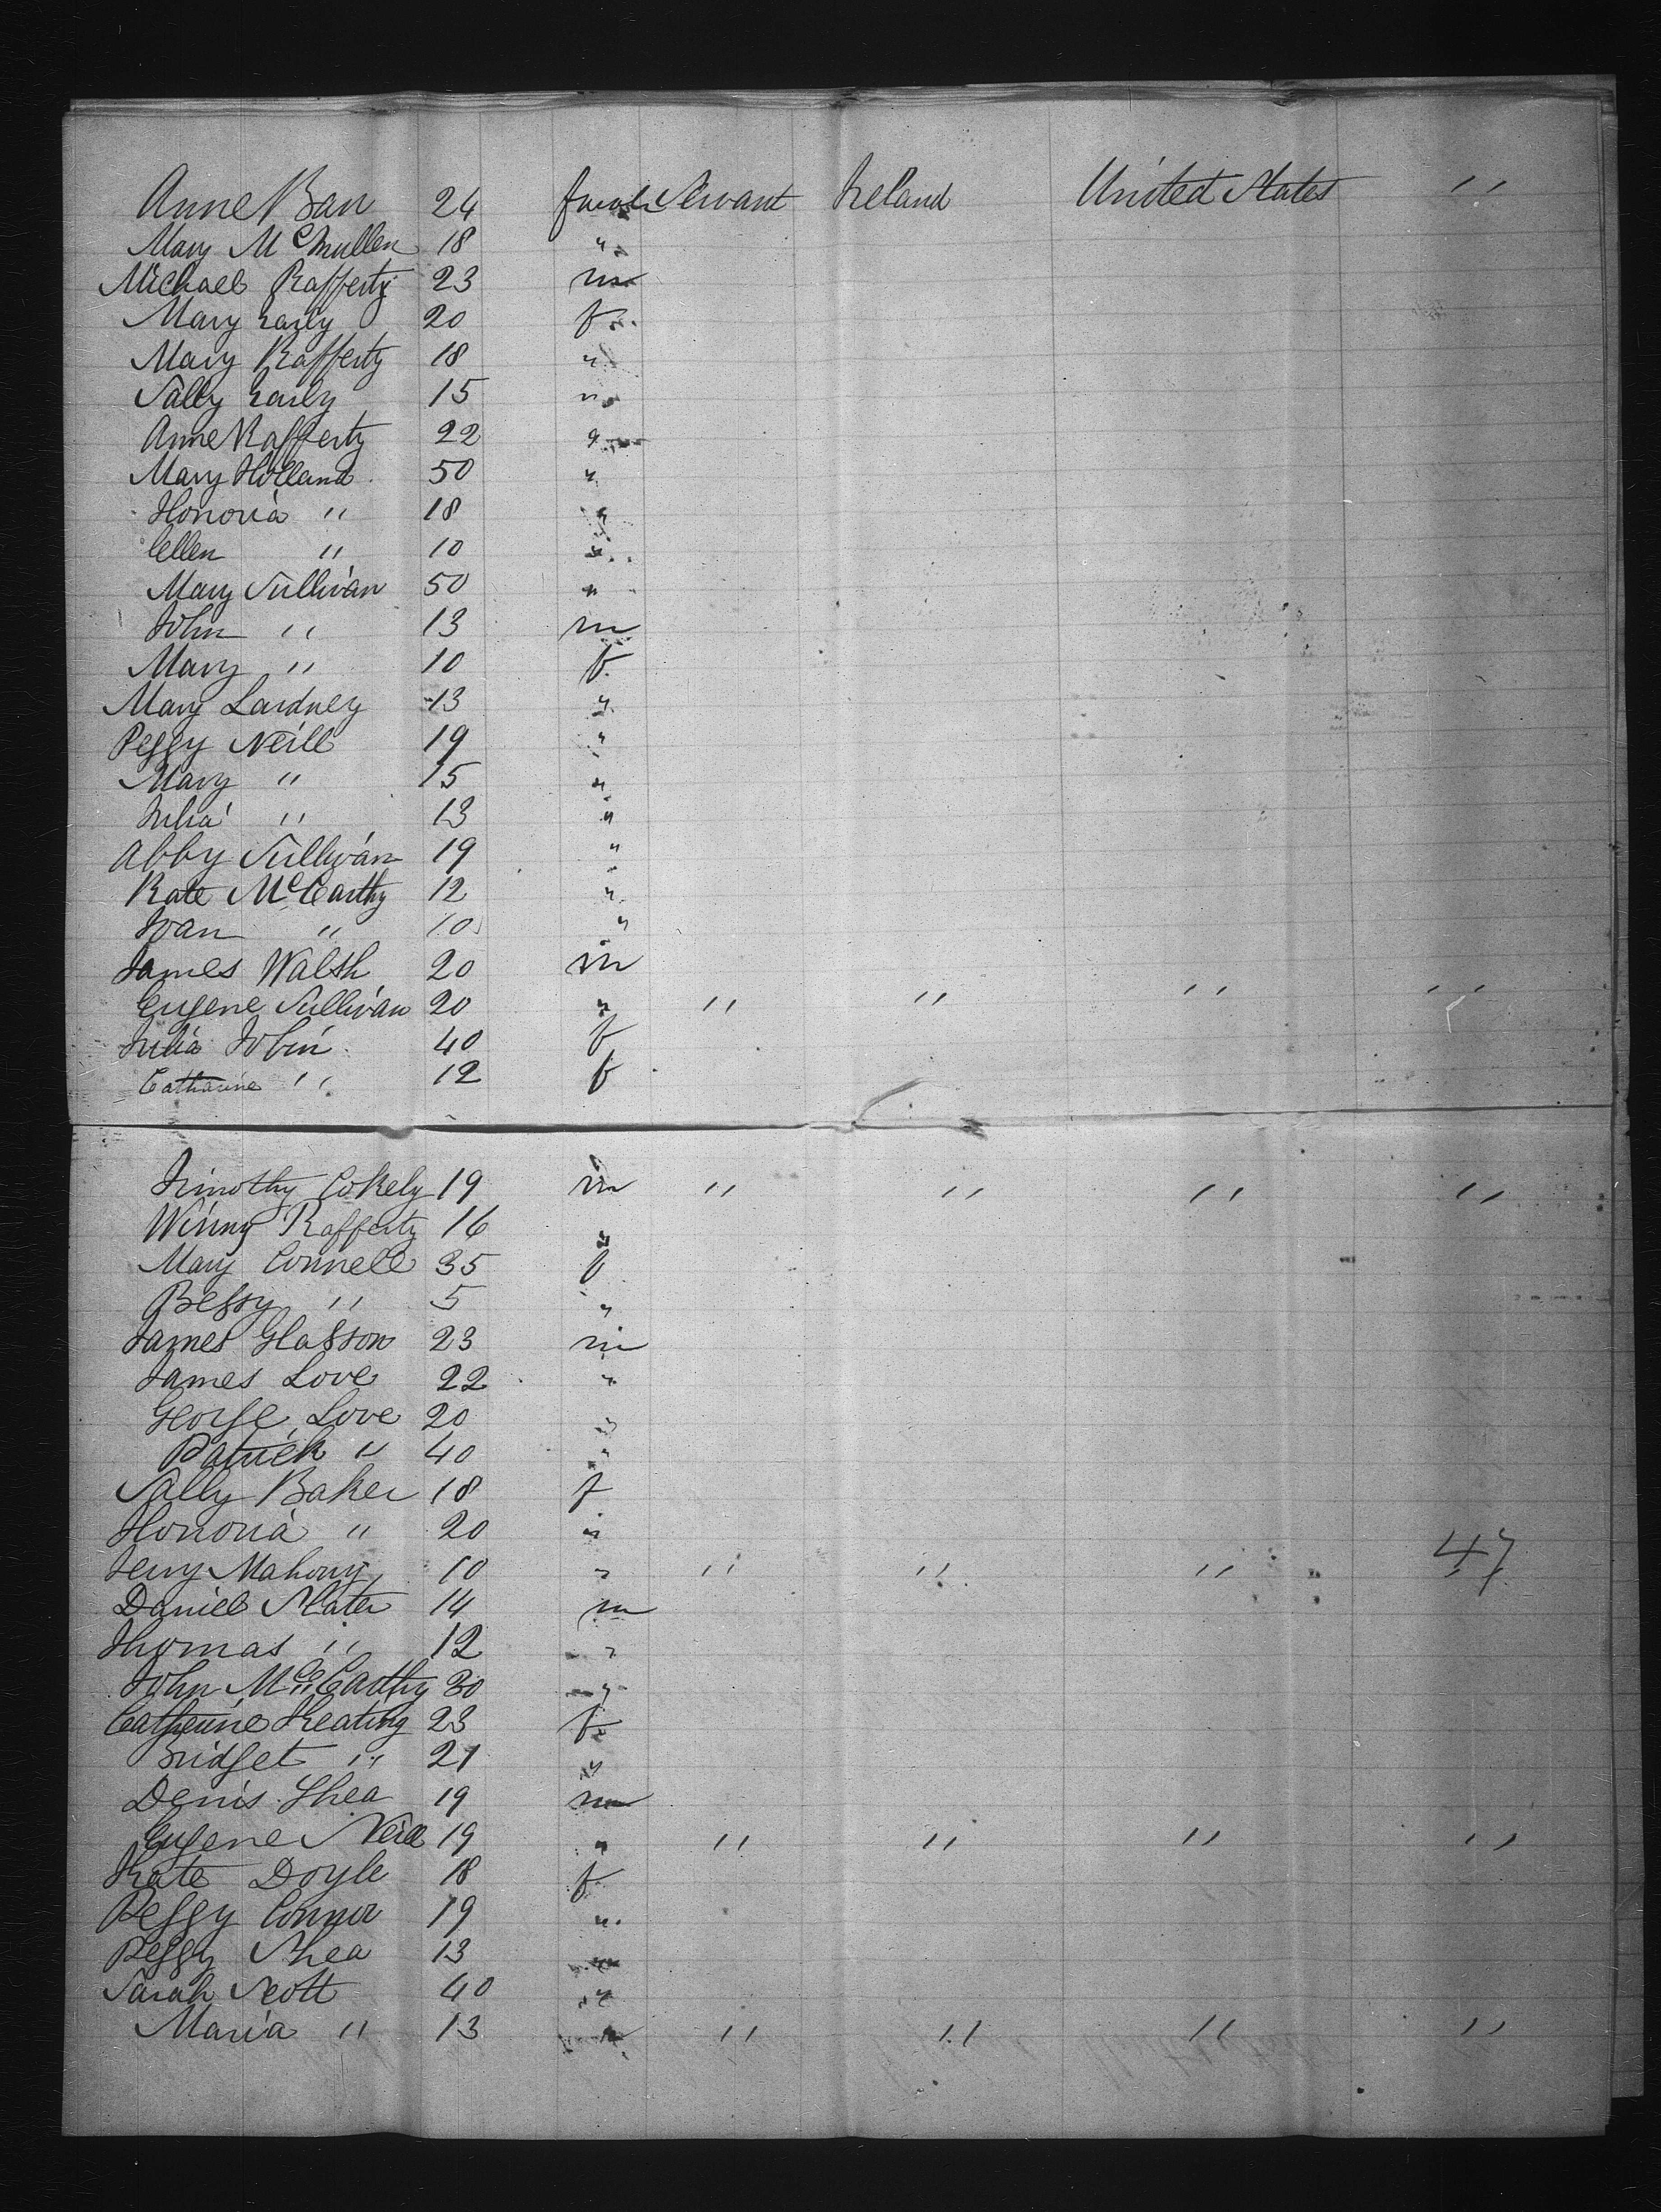 Anne Barr 24 female Servant Ireland United States "
Mary McMullen 18 "
Michael Rafferty 23 m
Mary Early 20 f
Mary Rafferty 18 "
Sally Early 15 "
Anne Rafferty 22 "
Mary Holland 50 "
Honoria " 18 "
Ellen " 10 "
Mary Sullivan 50 "
John " 13 m
Mary " 10 f
Mary Lardney 13 "
Peggy Neill 19 "
Mary " 15 "
Julia " 13 "
Abby Sullivan 19 "
Kate McCarthy 12 "
Joan " 10 "
James Walsh 20 m
Eugene Sullivan 20 " " " " "
Julia Tobin 40 f
Catharine " 12 f
Timothy Cokely 19 m " " " "
Winny Rafferty 16 "
Mary Connell 35 f
Bessy " 5 "
James Glasson 23 m
James Love 22 "
George Love 20 "
Patrick " 40 "
Sally Baker 18 f
Honoria " 20 "
Jerry Mahony 10 " " " " 47
Daniel Slater 14 m
Thomas " 12 "
John McCarthy 30 "
Catherine Keating 23 f
Bridget " 21 "
Denis Shea 19 m
Eugene Neill 19 " " " " "
Kate Doyle 18 f
Peggy Connor 19 "
Peggy Shea 13 "
Sarah Scott 40 "
Maria " 13 " " " " "